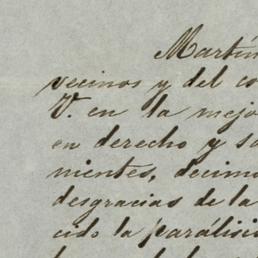 Martín
vecinos y del co
V. en la mejo
en derecho y sa
nientes, decimo
desgracias de la
cido la parálisi